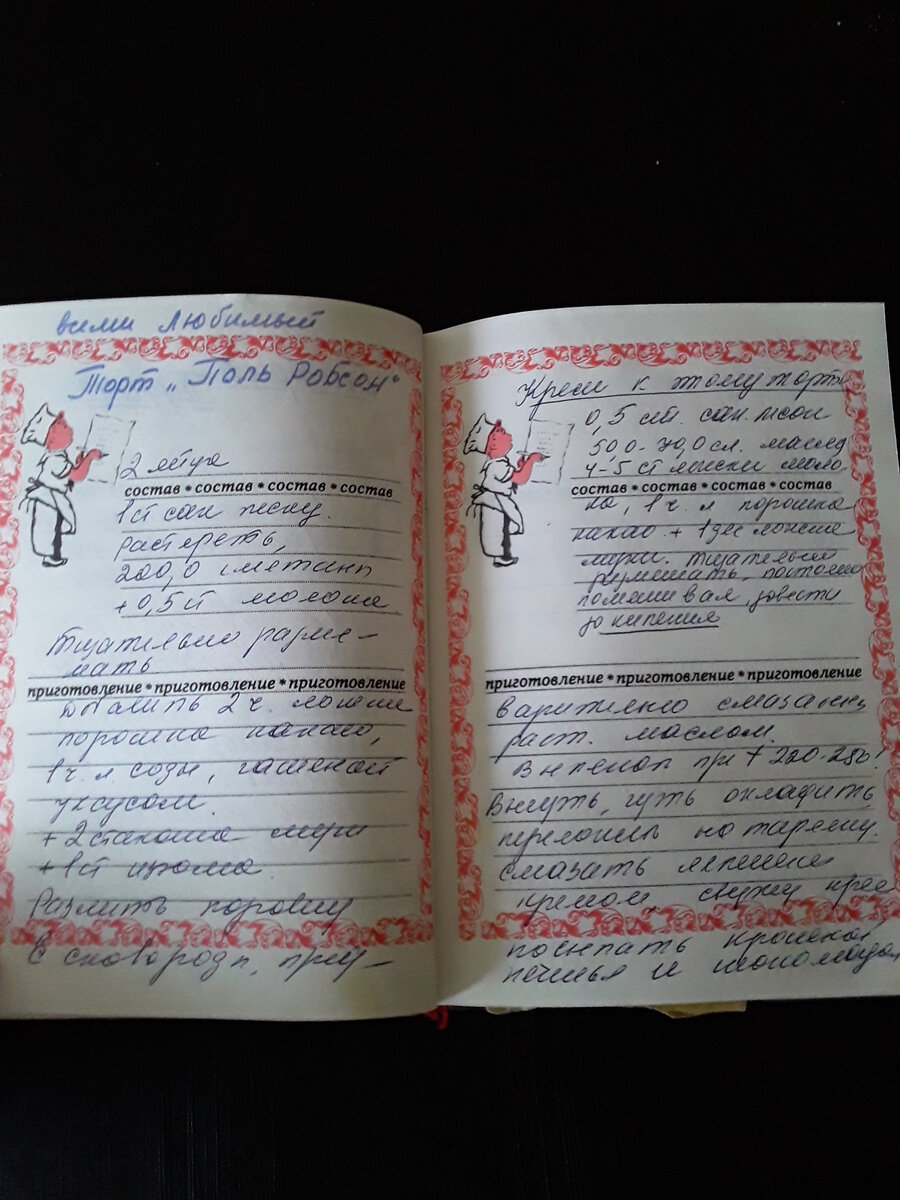 всеми любимый
Торт „Поль Робсон"
2 яйца
состав * состав * состав * состав
1 ст сах песку.
растереть,
200,0 сметаны
+ 0,5 ст молока
Тщательно разме-
шать
приготовление * приготовление * приготовление
Добавить 2 ч. ложки
порошка какао,
1 ч. л. соды, гашеной
уксусом.
+ 2 стакана муки
+ 1 ст изюма.
Разлить поровну
в сковороды, пред-
Крем к этому торту
0,5 ст. сах. песок
50,0-70,0 сл. масла
4-5 ст ложки моло
состав * состав * состав * состав
ка, 1 ч. л порошка
какао + 1 дес ложка
муки. Тщательно
размешать, постоянно
помешивая, довести
до кипения
приготовление * приготовление * приготовление
варительно смазанны
раст. маслом.
Выпекать при t 220-250!
Вынуть, чуть охладить
переложить на тарелку.
смазать лепешки
кремом сверху
посыпать крошкой
печенья и шоколадом